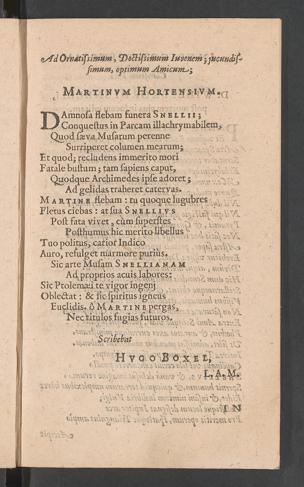 Ad Ornatissimum, Doctissimum Iuvenem; jucundis-
simum, optimum Amicum;
MARTINVM HORTENSIVM.
DAmnosa flebam funera SNELLII;
Conquestus in Parcam illachrymabilem,
Quod sæva Musarum perenne
Surriperet columen mearum;
Et quod; recludens immerito mori
Fatale bustum; tam sapiens caput,
Quodque Archimedes ipse adoret;
Ad gelidas traheret catervas.
MARTINE flebam: tu quoque lugubres
Fletus ciebas: at sua SNELLIVS
Post fata vivet, cùm superstes
Posthumus hic merito libellus
Tuo politus, carior Indico
Auro, refulget marmore purius.
Sic arte Musam SNELLIANAM
Ad proprios acuis labores:
Sic Ptolemæi te vigor ingenj
Oblectat: & sic spiritus igneus
Euclidis. ô MARTINE pergas,
Nec titulos fugias futuros.
Scribebat
HVGO BOXEL,
L.A.M.
IN